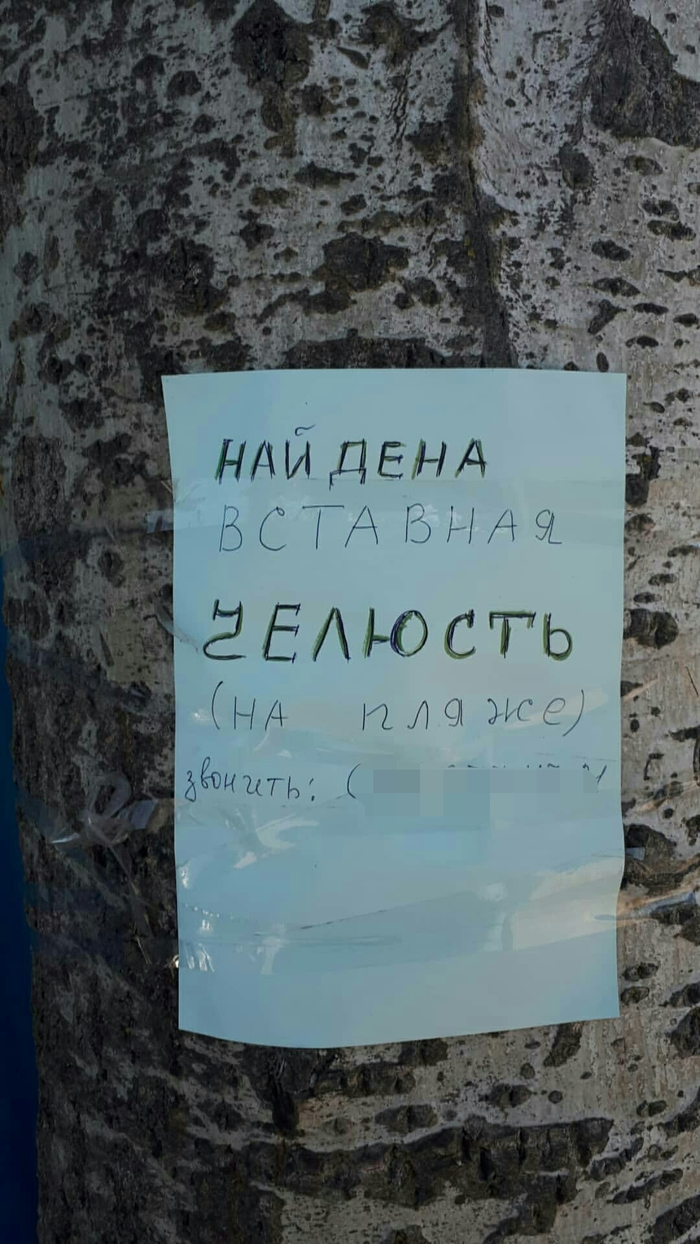 НАЙДЕНА
ВСТАВНАЯ
ЧЕЛЮСТЬ
(НА ПЛЯЖЕ)
звонить: (